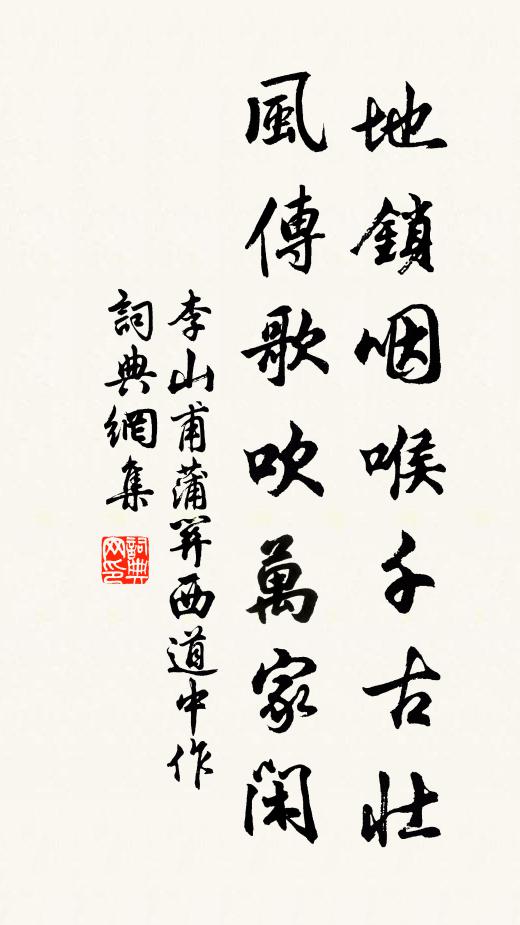 地鎖咽喉千古壯
風傳歌吹萬家閑
李山甫蒲關西道中作
詞典網集
詞典網印